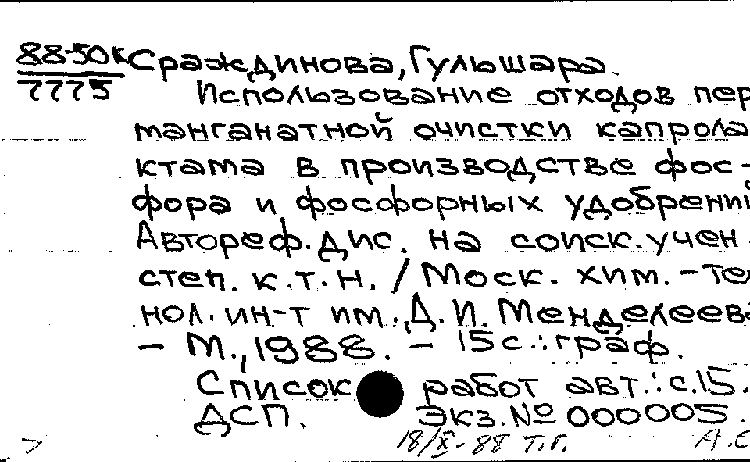 88-50к Сраждинова, Гульшара.
7775
Использование отходов пер
манганатной очистки капрола
ктама в производстве фос-
фора и фосфорных удобрений
Автореф. дис. на соиск. учен
степ. к.т.н. / Моск. хим.-тех
нол. ин-т им. Д.И. Менделеева
- М., 1988. - 15 с.: граф.
Список работ авт.: с.15.
ДСП. Экз. № 000005.
18/X-88 т.г. А.С